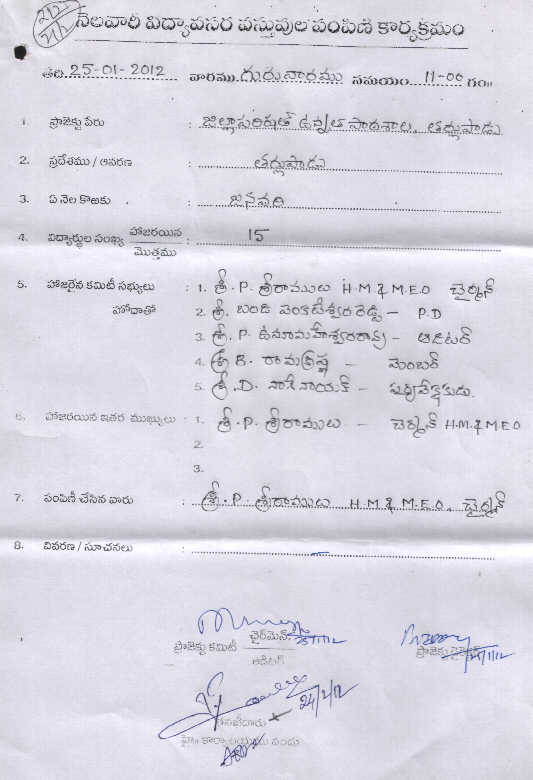 నెలవారి విద్యావసర వస్తువుల పంపిణి కార్యక్రమం
తేది. 25-01-2012 వారము గురువారము సమయం 11-00 గం॥
1. ప్రాజెక్టు పేరు : జిల్లాపరిషత్ ఉన్నత పాఠశాల, తర్లుపాడు
2. ప్రదేశము / ఆవరణ : తర్లుపాడు
3. ఏ నెల కొఱకు : జనవరి
4. విద్యార్థుల సంఖ్య హాజరయిన : 15
మొత్తము
5. హాజరైన కమిటీ సభ్యులు : 1. శ్రీ. P. శ్రీరాములు H.M & M.E.O చైర్మన్
హోదాతో 2. శ్రీ. బండి వెంకటేశ్వరరెడ్డి - P.D
3. శ్రీ. P. ఉమామహేశ్వరరావు - ఆడిటర్
4. శ్రీ B. రామకృష్ణ - మెంబర్
5. శ్రీ. D. నాగేనాయక్ - పర్యవేక్షకుడు.
6. హాజరయిన ఇతర ముఖ్యులు : 1. శ్రీ. P. శ్రీరాములు - చైర్మన్ H.M. & M.E.O
2.
3.
7. పంపిణీ చేసిన వారు : శ్రీ. P. శ్రీరాములు H.M & M.E.O, చైర్మన్
8. వివరణ / సూచనలు :
ప్రాజెక్టు కమిటీ చైర్‌మెన్ 25/1/12
ఆడిటర్
ప్రాజెక్టు డైరెక్టర్ 25/1/12
24/2/12